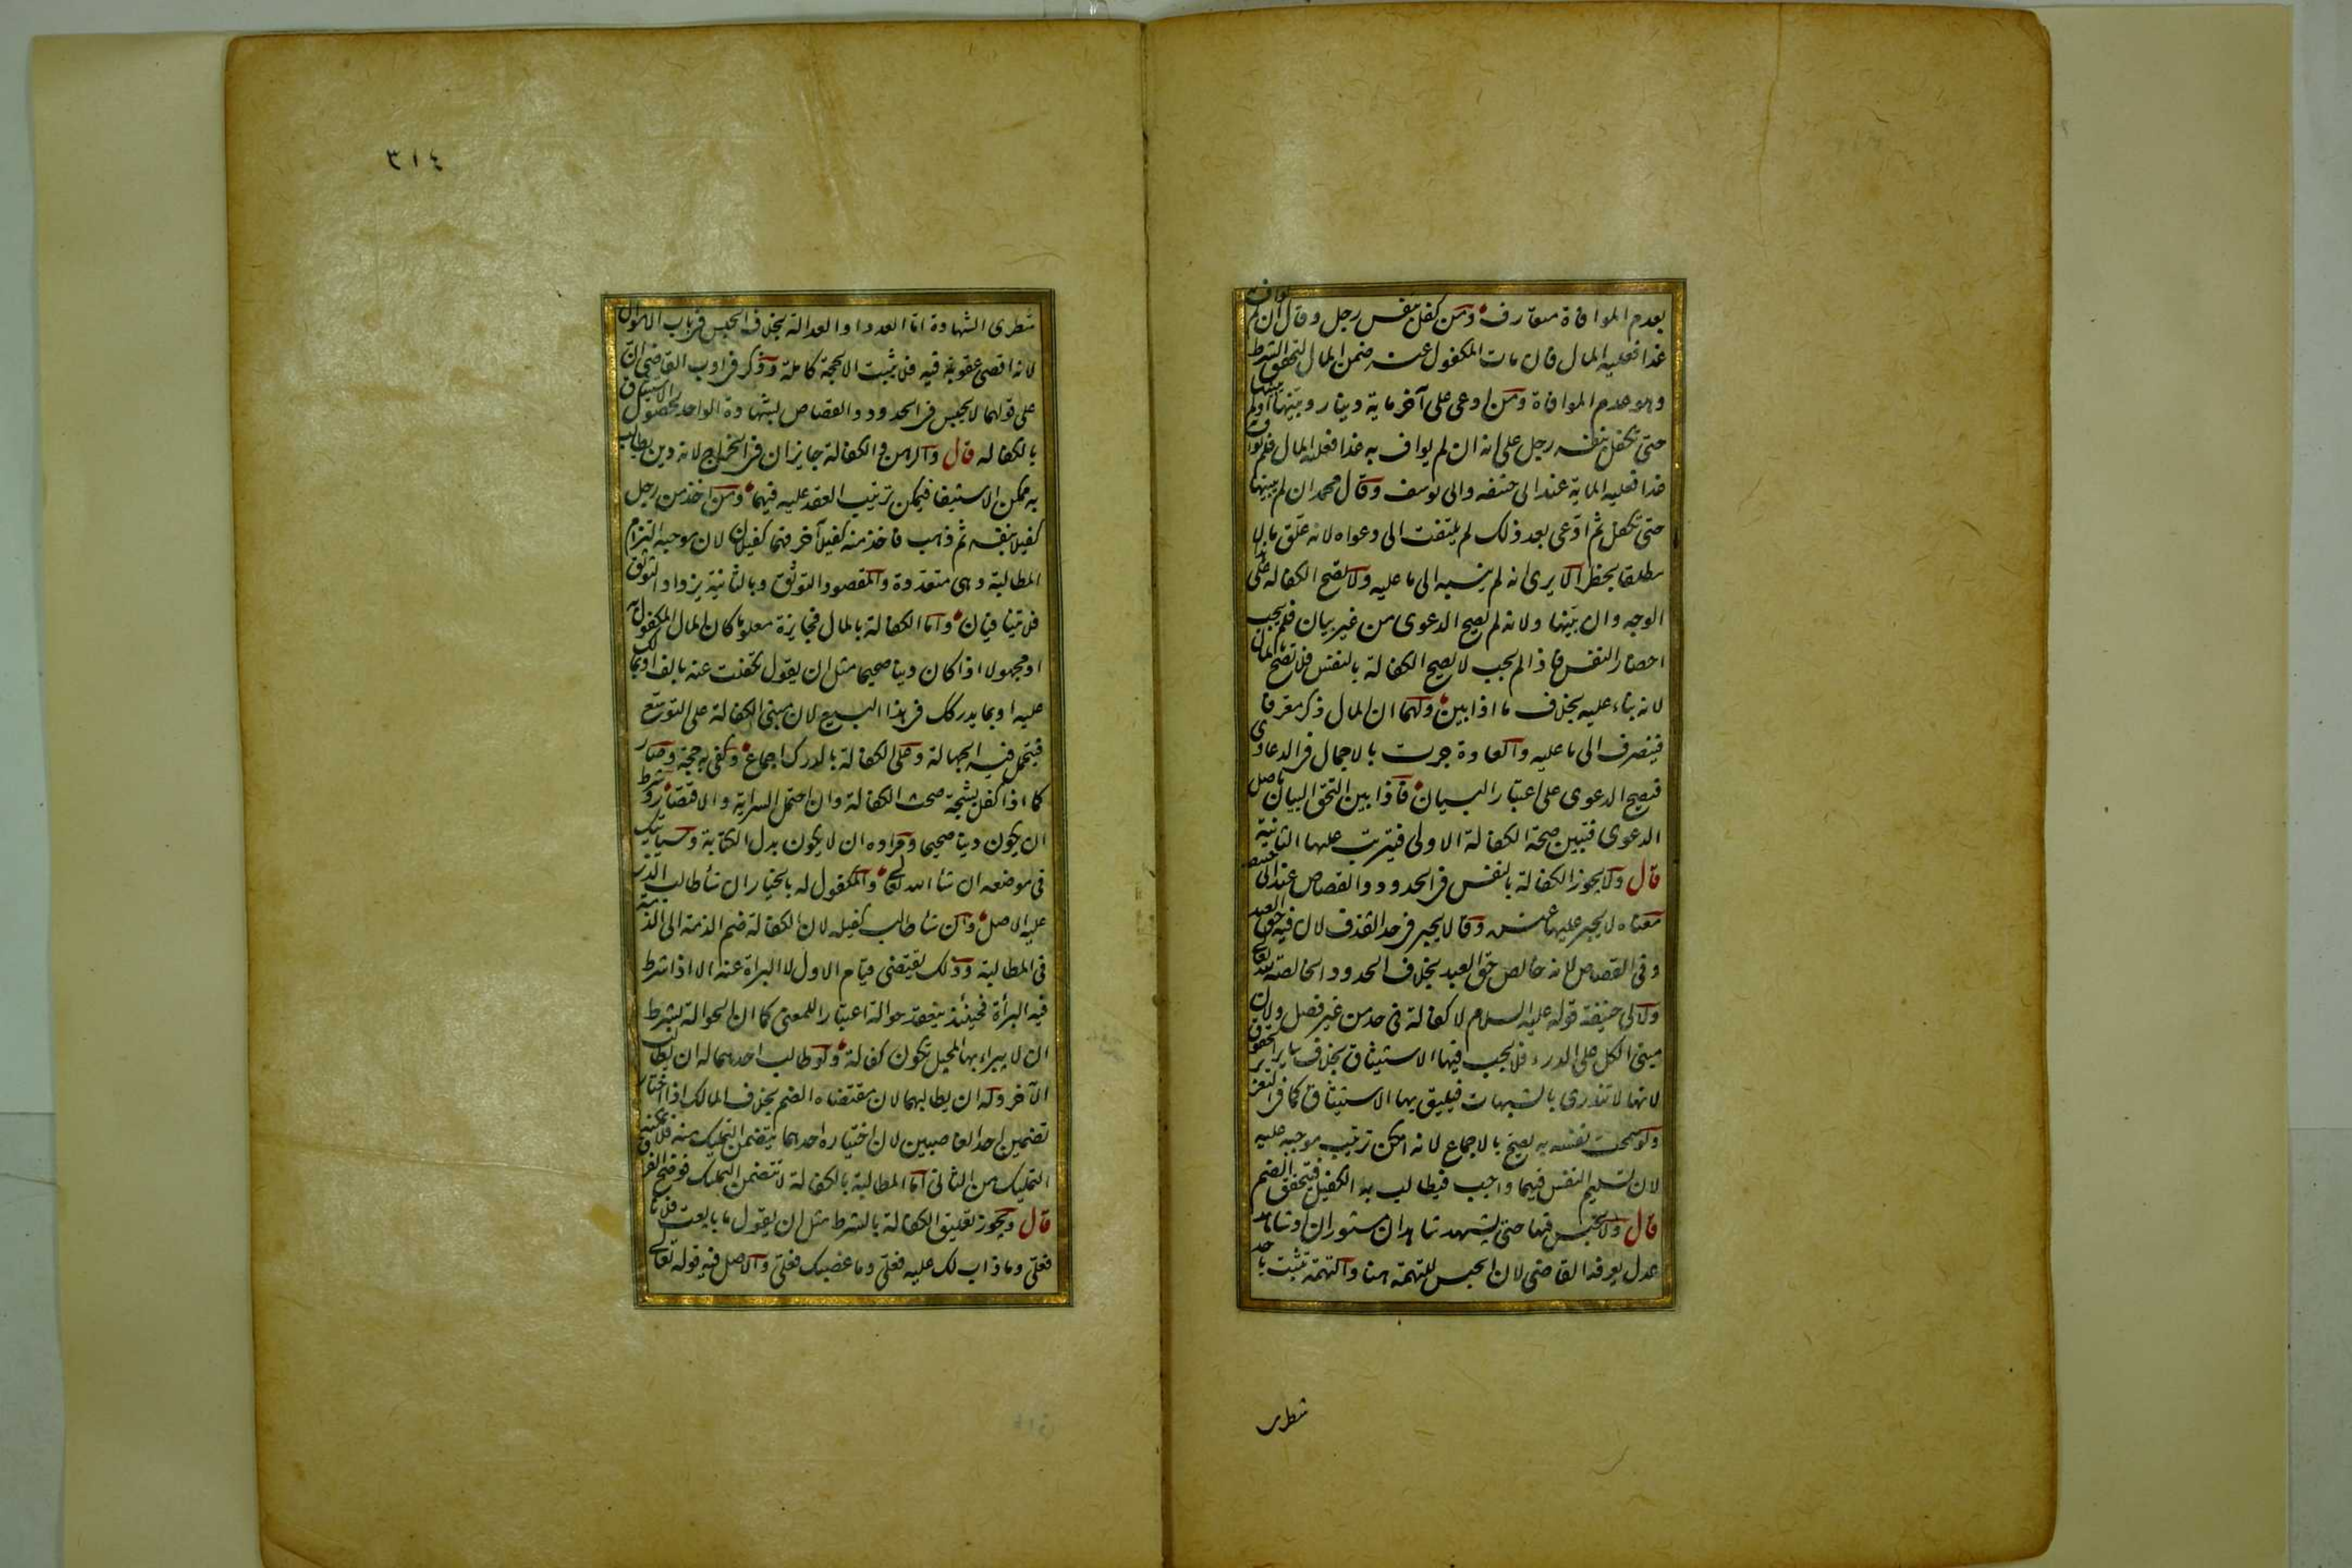 بعدم الموافاة متعارف ومن كفل بنفس رجل وقال ان لم يواف به
غدا فعليه المال فان مات المكفول عنه ضمن المال لتحقق الشرط
وهو عدم الموافاة ومن ادعى على آخر ماية دينار وبينها اولم يبينها
حتى تكفل بنفسه رجل على انه ان لم يواف به غدا فعليه المال فلم يواف به
غدا فعليه الماية عند ابى حنيفه وابى يوسف وقال محمد ان لم يبينها
حتى تكفل ثم ادعى بعد ذلك لم يلتفت الى دعواه لانه علق مالا
مطلقا بخطر الا يرى انه لم ينسبه الى ما عليه ولا يصح الكفاله على هذا
الوجه وان بينها ولانه لم يصح الدعوى من غير بيان فلم يجب
احضار النفس فاذا لم يجب لا يصح الكفالة بالنفس فلا تصح بالمال
لانه بناء عليه بخلاف ما اذا بين ولهما ان المال ذكر معرفا
فينصرف الى ما عليه والعادة جرت بالاجمال فى الدعاوى
فيصح الدعوى على اعتبار البيان فاذا بين التحق البيان باصل
الدعوى فتبين صحة الكفالة الاولى فيترتب عليها الثانية
قال ولا يجوز الكفالة بالنفس فى الحدود والقصاص عند ابى حنيفه
معناه لا يجبر عليها عنده وقالا يجبر فى حد القذف لان فيه حق العبد
وفى القصاص لانه خالص حق العبد بخلاف الحدود الخالصة لله تعالى
ولابى حنيفة قوله عليه السلام لا كفالة فى حد من غير فصل ولان
مبنى الكل على الدرء فلا يجب فيها الاستيثاق بخلاف ساير الحقوق
لانها لا تندرى بالشبهات فيليق بها الاستيثاق كما فى التعزير
ولو سمحت نفسه به يصح بالاجماع لانه امكن ترتيب موجبه عليه
لان تسليم النفس فيهما واجب فيطالب به الكفيل فيتحقق الضم
قال ولا يحبس فيها حتى يشهد شاهدان مستوران او شاهد
عدل يعرفه القاضى لان الحبس للتهمة هنا والتهمة تثبت باحد
شطرى
٣١٤
شطرى الشهادة اما العدد او العدالة بخلاف الحبس فى باب الاموال
لانه اقصى عقوبة فيه فلا يثبت الا بحجة كاملة وذكر فى ادب القاضى ان
على قولهما لا يحبس فى الحدود والقصاص بشهادة الواحد لحصول الاستيثاق
بالكفاله قال والرهن والكفالة جايزان فى الخراج لانه دين يطالب
به ممكن الاستيفا فيمكن ترتيب العقد عليه فيهما ومن اخذ من رجل
كفيلا بنفسه ثم ذهب فاخذ منه كفيلا آخر فهما كفيلان لان موجبه التزام
المطالبة وهى متعددة والمقصود التوثق وبالثانية يزداد التوثق
فلا يتنافيان واما الكفالة بالمال فجايزة معلوما كان المال المكفول به
او مجهولا اذا كان دينا صحيحا مثل ان يقول تكفلت عنه بالف او بما لك
عليه او بما يدركك فى هذا البيع لان مبنى الكفالة على التوسع
فيتحمل فيه الجهالة وعلى الكفالة بالدرك اجماع وكفى به حجة وصار
كما اذا كفل بشجة صحت الكفالة وان احتمل السراية والاقتصار وشرط
ان يكون دينا صحيحا ومراده ان لا يكون بدل الكتابة وسياتيك
فى موضعه ان شا الله تعالى والمكفول له بالخيار ان شا طالب الذى
عليه الاصل وان شا طالب كفيله لان الكفالة ضم الذمة الى الذمة
فى المطالبة وذلك يقتضى قيام الاول لا البراة عنه الا اذا شرط
فيه البرأة فحينئذ ينعقد حوالة اعتبارا للمعنى كما ان الحوالة بشرط
ان لا يبراء بها المحيل تكون كفالة ولو طالب احدهما له ان يطالب
الآخر وله ان يطالبهما لان مقتضاه الضم بخلاف المالك اذا اختار
تضمين احد الغاصبين لان اختياره احدهما يتضمن التمليك منه فلا يمكنه
التمليك من الثانى اما المطالبة بالكفالة لا تتضمن التمليك فوضح الفرق
قال ويجوز تعليق الكفالة بالشرط مثل ان يقول ما بايعت فلانا
فعلى وما ذاب لك عليه فعلى وما غصبك فعلى والاصل فيه قوله تعالى